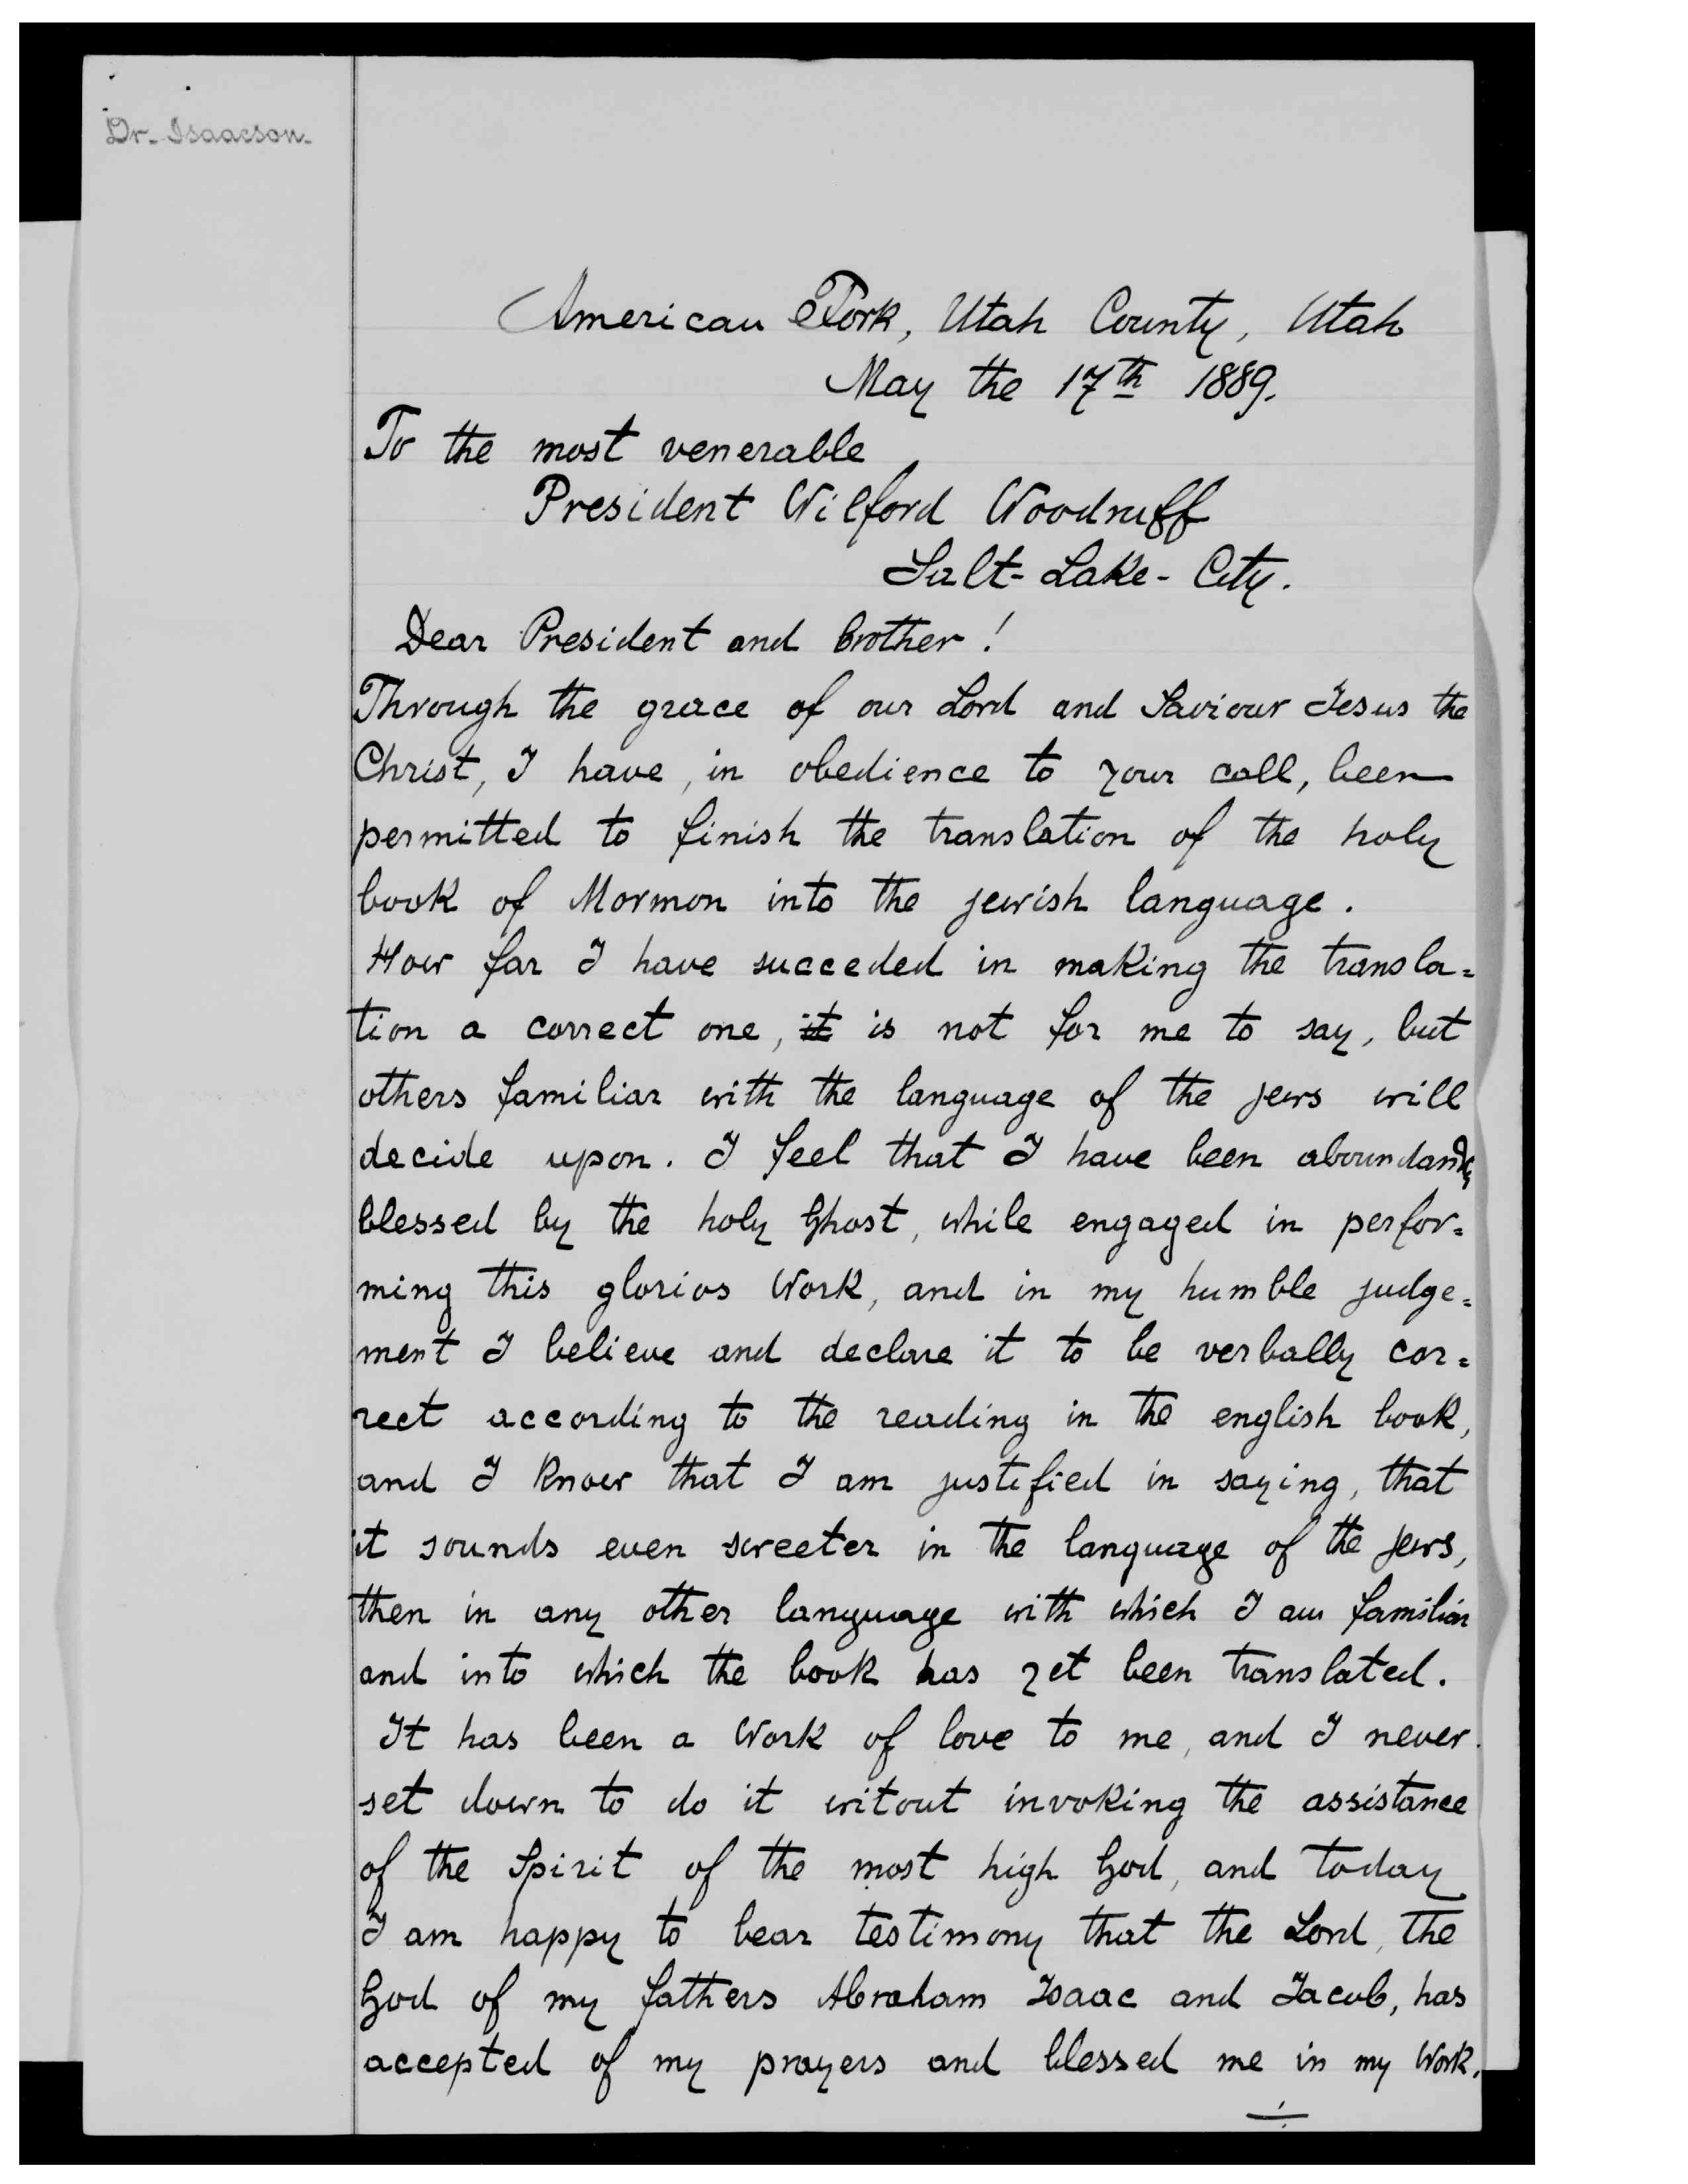 Dr. Isaacson.
American Fork, Utah County, Utah
May the 17th 1889.
To the most venerable
President Wilford Woodruff
Salt-Lake-City.
Dear President and brother!
Through the grace of our Lord and Saviour Jesus the
Christ, I have, in obedience to your call, been
permitted to finish the translation of the holy
book of Mormon into the jewish language.
How far I have succeded in making the transla=
tion a correct one, it is not for me to say, but
others familiar with the language of the jews will
decide upon. I feel that I have been aboundantly
blessed by the holy Ghost, while engaged in perfor=
ming this glorios Work, and in my humble judge=
ment I believe and declare it to be verbally cor=
rect according to the reading in the english book,
and I know that I am justified in saying, that
it sounds even sweeter in the language of the jews,
then in any other language with which I am familiar
and into which the book has yet been translated.
It has been a Work of love to me, and I never
set down to do it witout invoking the assistance
of the Spirit of the most high God, and today
I am happy to bear testimony that the Lord, the
God of my fathers Abraham Isaac and Jacob, has
accepted of my prayers and blessed me in my Work.